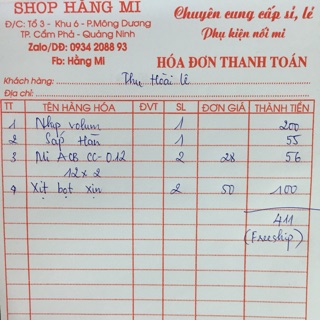 SHOP HẰNG MI
Đ/C: Tổ 3 - Khu 6 - P.Mông Dương
TP. Cẩm Phả - Quảng Ninh
Zalo/DĐ: 0934 2088 93
Fb: Hằng Mi
Chuyên cung cấp sỉ, lẻ
Phụ kiện nối mi
HÓA ĐƠN THANH TOÁN
Khách hàng: Thu Hoài Lê
TT TÊN HÀNG HÓA ĐVT SL ĐƠN GIÁ THÀNH TIỀN
1 Nhíp volum 1 200
2 Sáp Hàn 1 55
3 Mi ACB CC-0.12 2 28 56
12 x 2
4 Xịt bọt xịn 2 50 100
411
(Freeship)